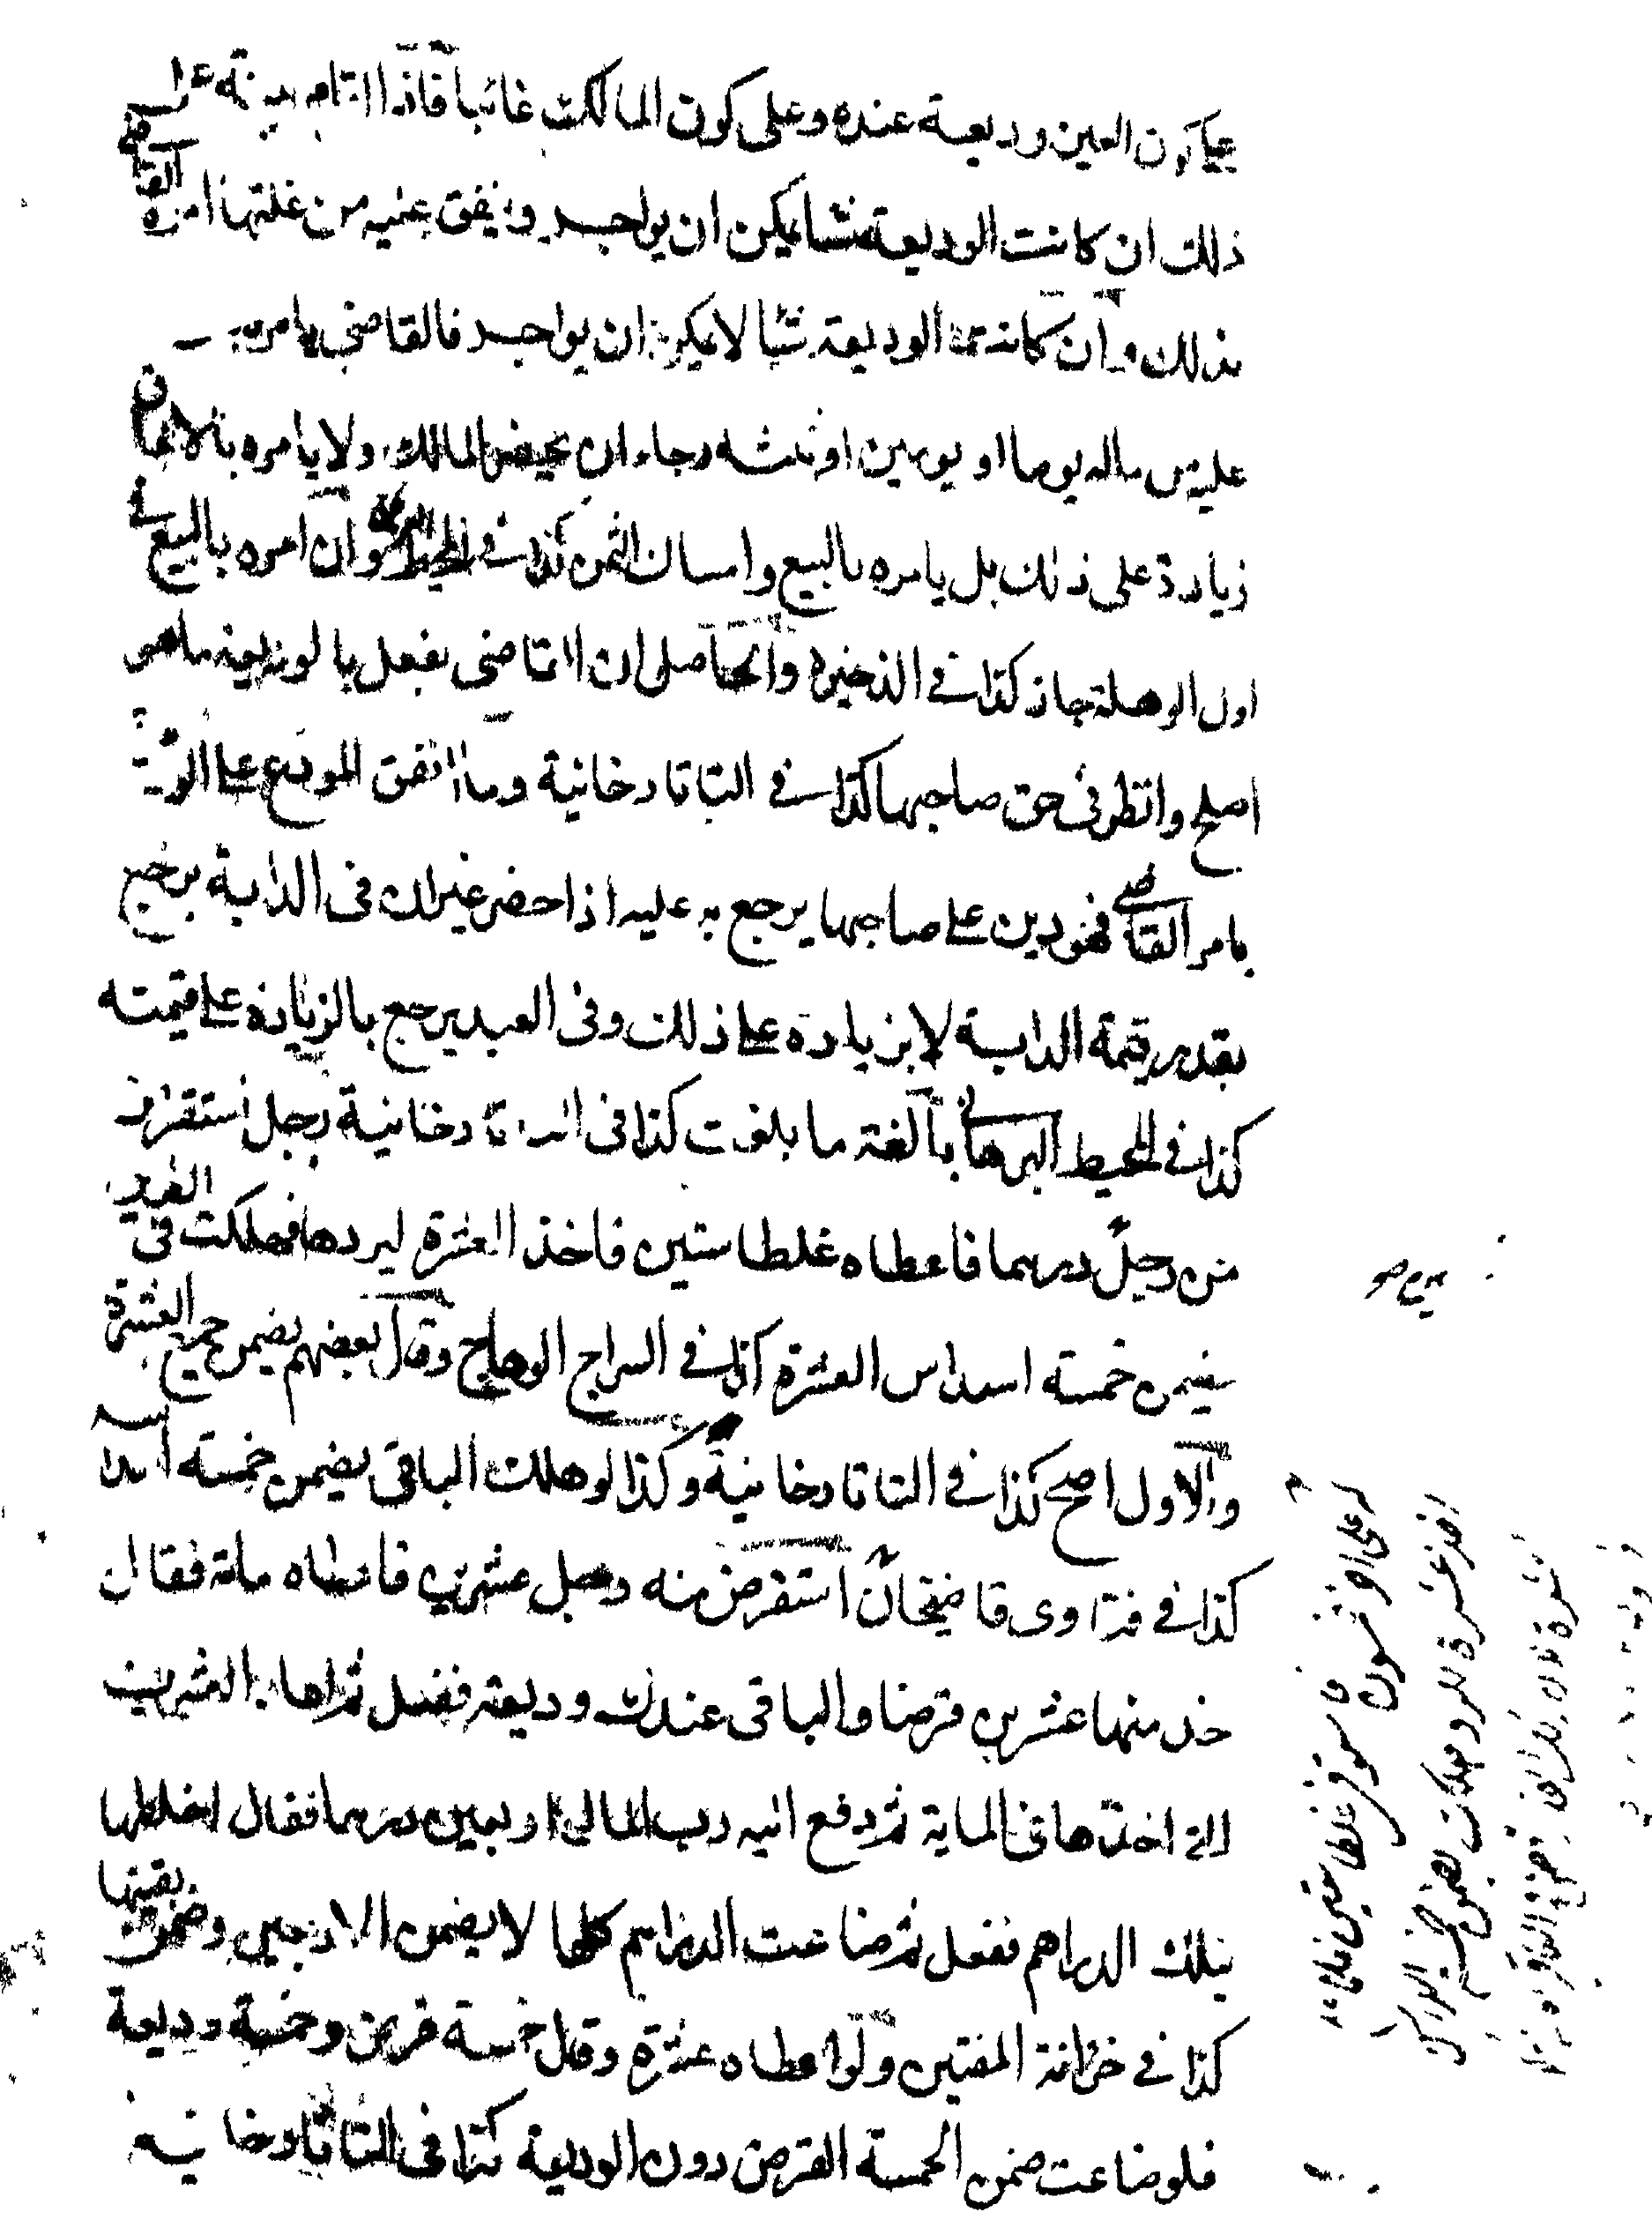 على كون العين وديعة عنده وعلى كون المالك غائبا فاذا اقام بينة على
ذلك ان كانت الوديعة شيئا يمكن ان يواجر وينفق عليه من غلتها امره القاضى
بذلك وان كانت الوديعة شيئا لا يمكن ان يواجر فالقاضى يامره
عليه من ماله يوما او يومين او ثلثة رجاء ان يحضر المالك ولا يامره بالانفاق
زيادة على ذلك بل يامره بالبيع وامساك الثمن كذا فى المحيط وان امره بالبيع فى
اول الوهلة جاز كذا فى الذخيرة والحاصل ان القاضى يفعل بالوديعة ما هو
اصلح وانظر فى حق صاحبها كذا فى التاتارخانية وما انفق المودع على الوديعة
بامر القاضى فهو دين على صاحبها يرجع به عليه اذا حضر غير ان فى الدابة يرجع
بقدر قيمة الدابة لا بزيادة على ذلك وفى العبد يرجع بالزيادة على قيمته
كذا فى المحيط البرهانى بالغة ما بلغت كذا فى التاتارخانية رجل استقرض
من رجل درهما فاعطاه غلطا ستين فاخذ العشرة ليردها فهلكت فى الطريق
يضمن خمسة اسداس العشرة كذا فى السراج الوهاج وقال بعضهم يضمن جميع العشرة
والاول اصح كذا فى التاتارخانية وكذا لو هلك الباقى يضمن خمسة اسداسه
كذا فى فتاوى قاضيخان استقرض منه رجل عشرين فاعطاه مائة فقال
خذ منها عشرين قرضا والباقى عندك وديعة ففعل ثم اعاد العشرين
التى اخذها فى الماية ثم دفع اليه رب المال اربعين درهما فقال اخلطها
بتلك الدراهم ففعل ثم ضاعت الدراهم كلها لا يضمن الاربعين وضمن بقيتها
كذا فى خزانة المفتين ولو اعطاه عشرة وقال خمسة قرض وخمسة وديعة
فلو ضاعت ضمن الخمسة القرض دون الوديعة كذا فى التاتارخانية